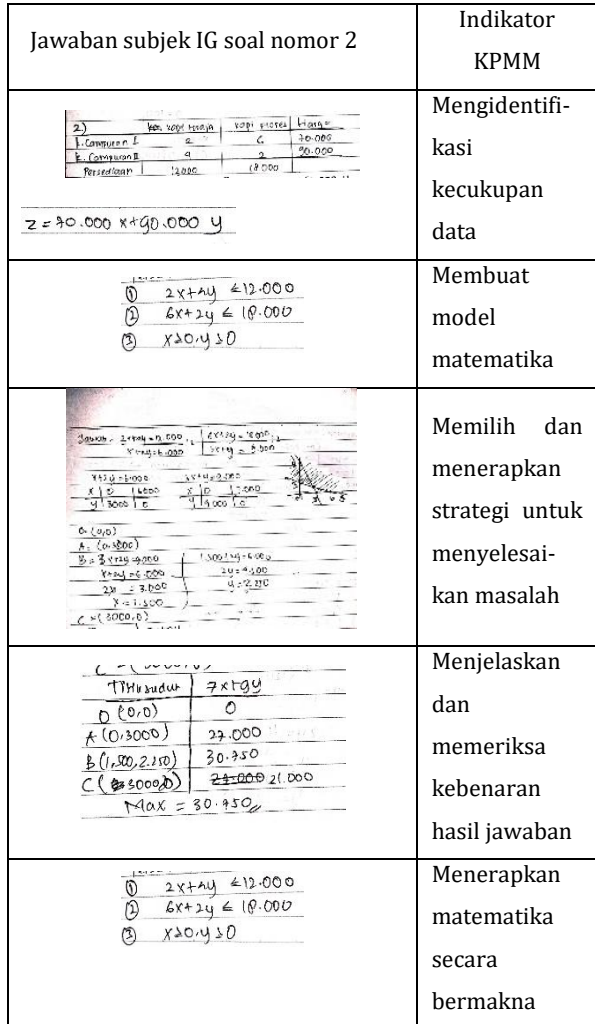 Jawaban subjek IG soal nomor 2
Indikator
KPMM
2) kopi toraja kopi Flores Harga
1. Campuran I 2 6 70.000
2. Campuran II 4 2 90.000
Persediaan 12000 18000
z = 70.000 x + 90.000 y
Mengidentifi-
kasi
kecukupan
data
① 2x+4y ≤ 12.000
② 6x+2y ≤ 18.000
③ x≥0, y≥0
Membuat
model
matematika
x+2y=6.000
x 0 6000
y 3000 0
y 4000 0
O (0,0)
B = 3x+2y
x+2y=6.000
2x = 3.000
x = 1.500
C = (3000,0)
Memilih dan
menerapkan
strategi untuk
menyelesai-
kan masalah
Titik sudut 7x+9y
O (0,0) 0
A (0,3000) 27.000
B (1,500, 2.250) 30.750
C (3000,0) 21.000
Max = 30.750
Menjelaskan
dan
memeriksa
kebenaran
hasil jawaban
① 2x+4y ≤ 12.000
② 6x+2y ≤ 18.000
③ x≥0, y≥0
Menerapkan
matematika
secara
bermakna